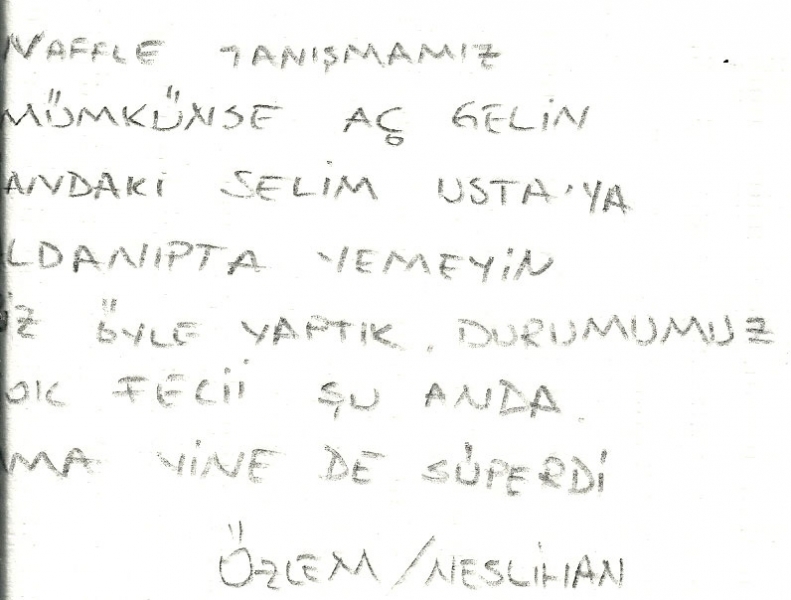 WAFFLE TANIŞMAMIZ
MÜMKÜNSE AÇ GELİN
ANDAKİ SELİM USTA'YA
LDANIPTA YEMEYİN
İZ ÖYLE YAPTIK. DURUMUMUZ
OK FECİİ ŞU ANDA.
MA YİNE DE SÜPERDİ
ÖZLEM/NESLİHAN